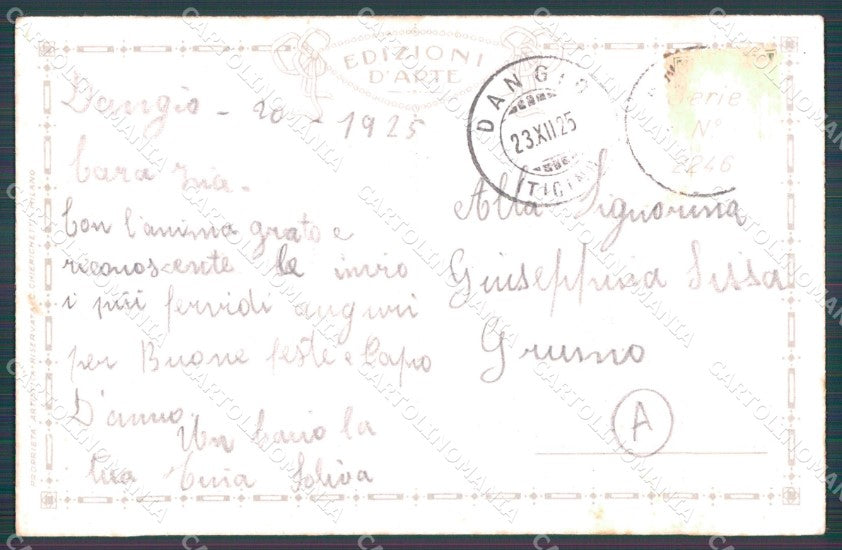 EDIZIONI
D'ARTE
Dangio - 20 - 1925
Cara zia -
Con l'anima grato e
riconoscente le invio
i più fervidi auguri
per Buone feste e Capo
D'anno.
Un bacio la
tua
Soliva
DANGIO
23.XII.25
(TICINO)
Serie
N°
2246
Alla Signorina
Giuseppina Sissa
Grumo
A
PROPRIETÀ ARTISTICA RISERVATA
MILANO
CARTOLINOMANIA